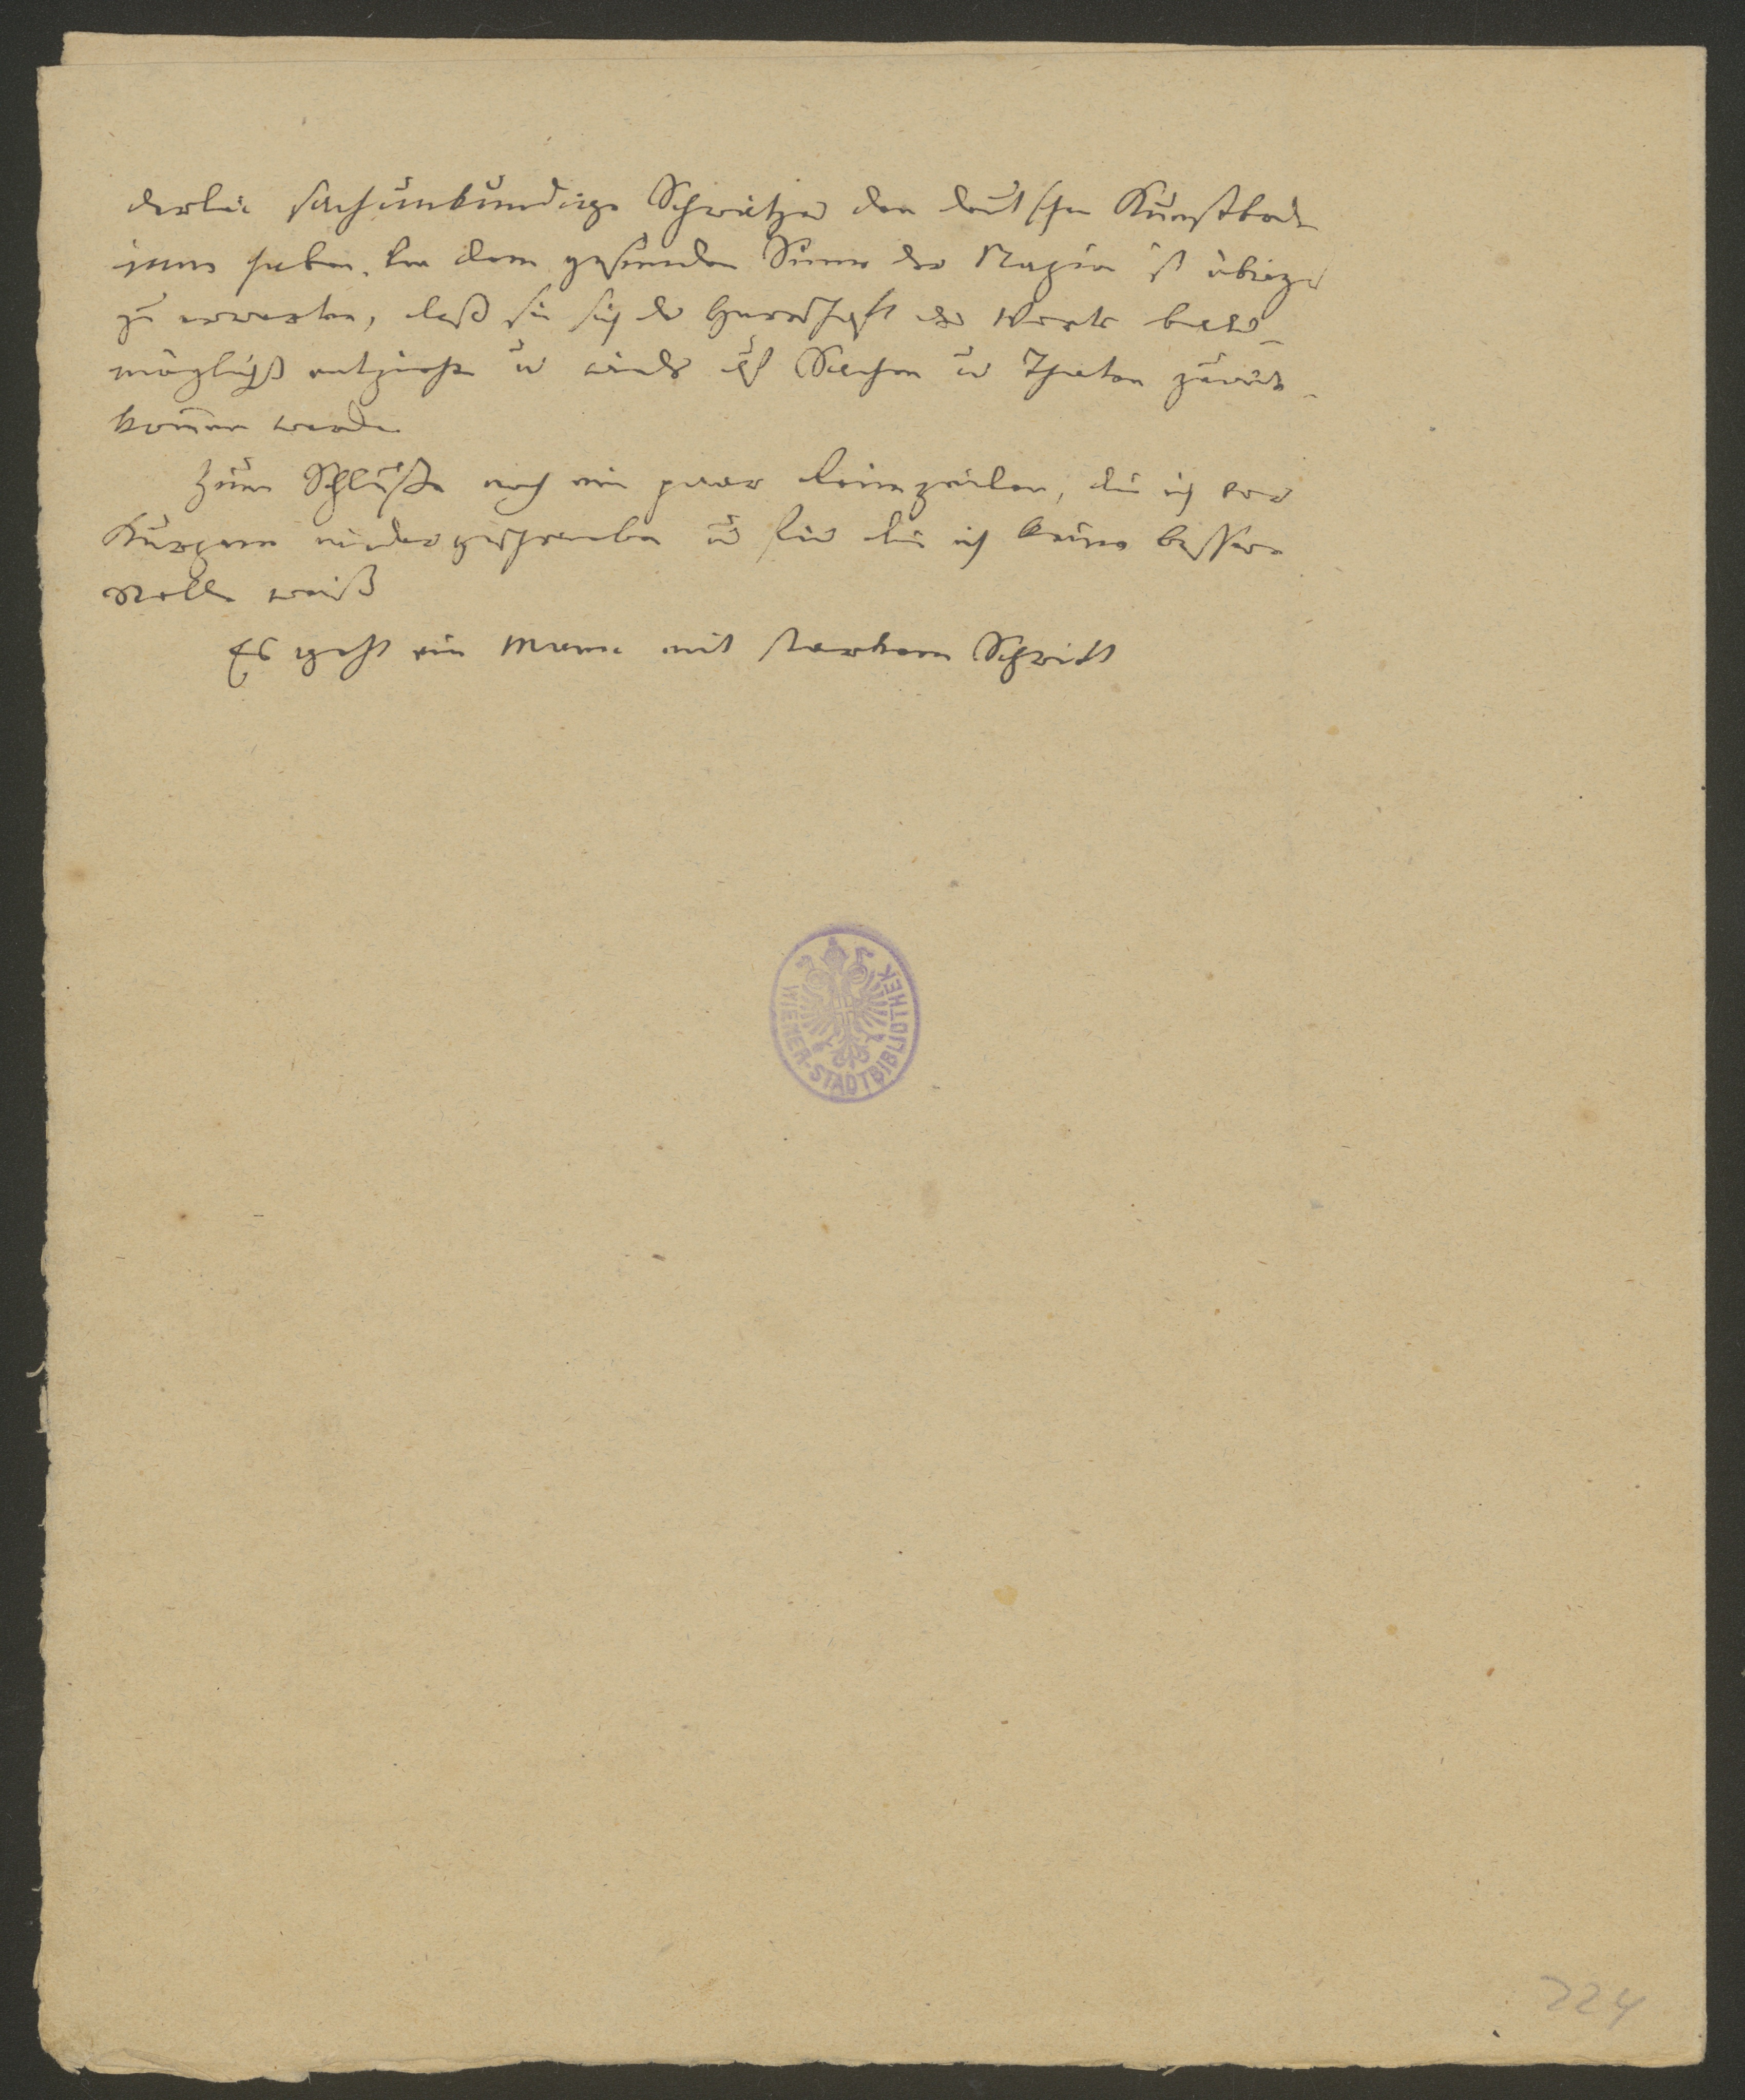 derlei sachunkundige Schwätzer den deutschen Kunstboden
inne haben. Von dem gesunden Sinne der Nazion ist übrigens
zu erwarten, daß sie sich der Herrschaft der Worte bald-
möglichst entziehen u wieder auf Sachen u Thaten zurück-
kom̄en werde.
Zum Schluße noch ein paar Reimzeilen, die ich vor
Kurzem niedergeschrieben u für die ich keine bessere
Stelle weiß
Es geht ein Mann mit starkem Schritt
WIENER-STADTBIBLIOTHEK
224